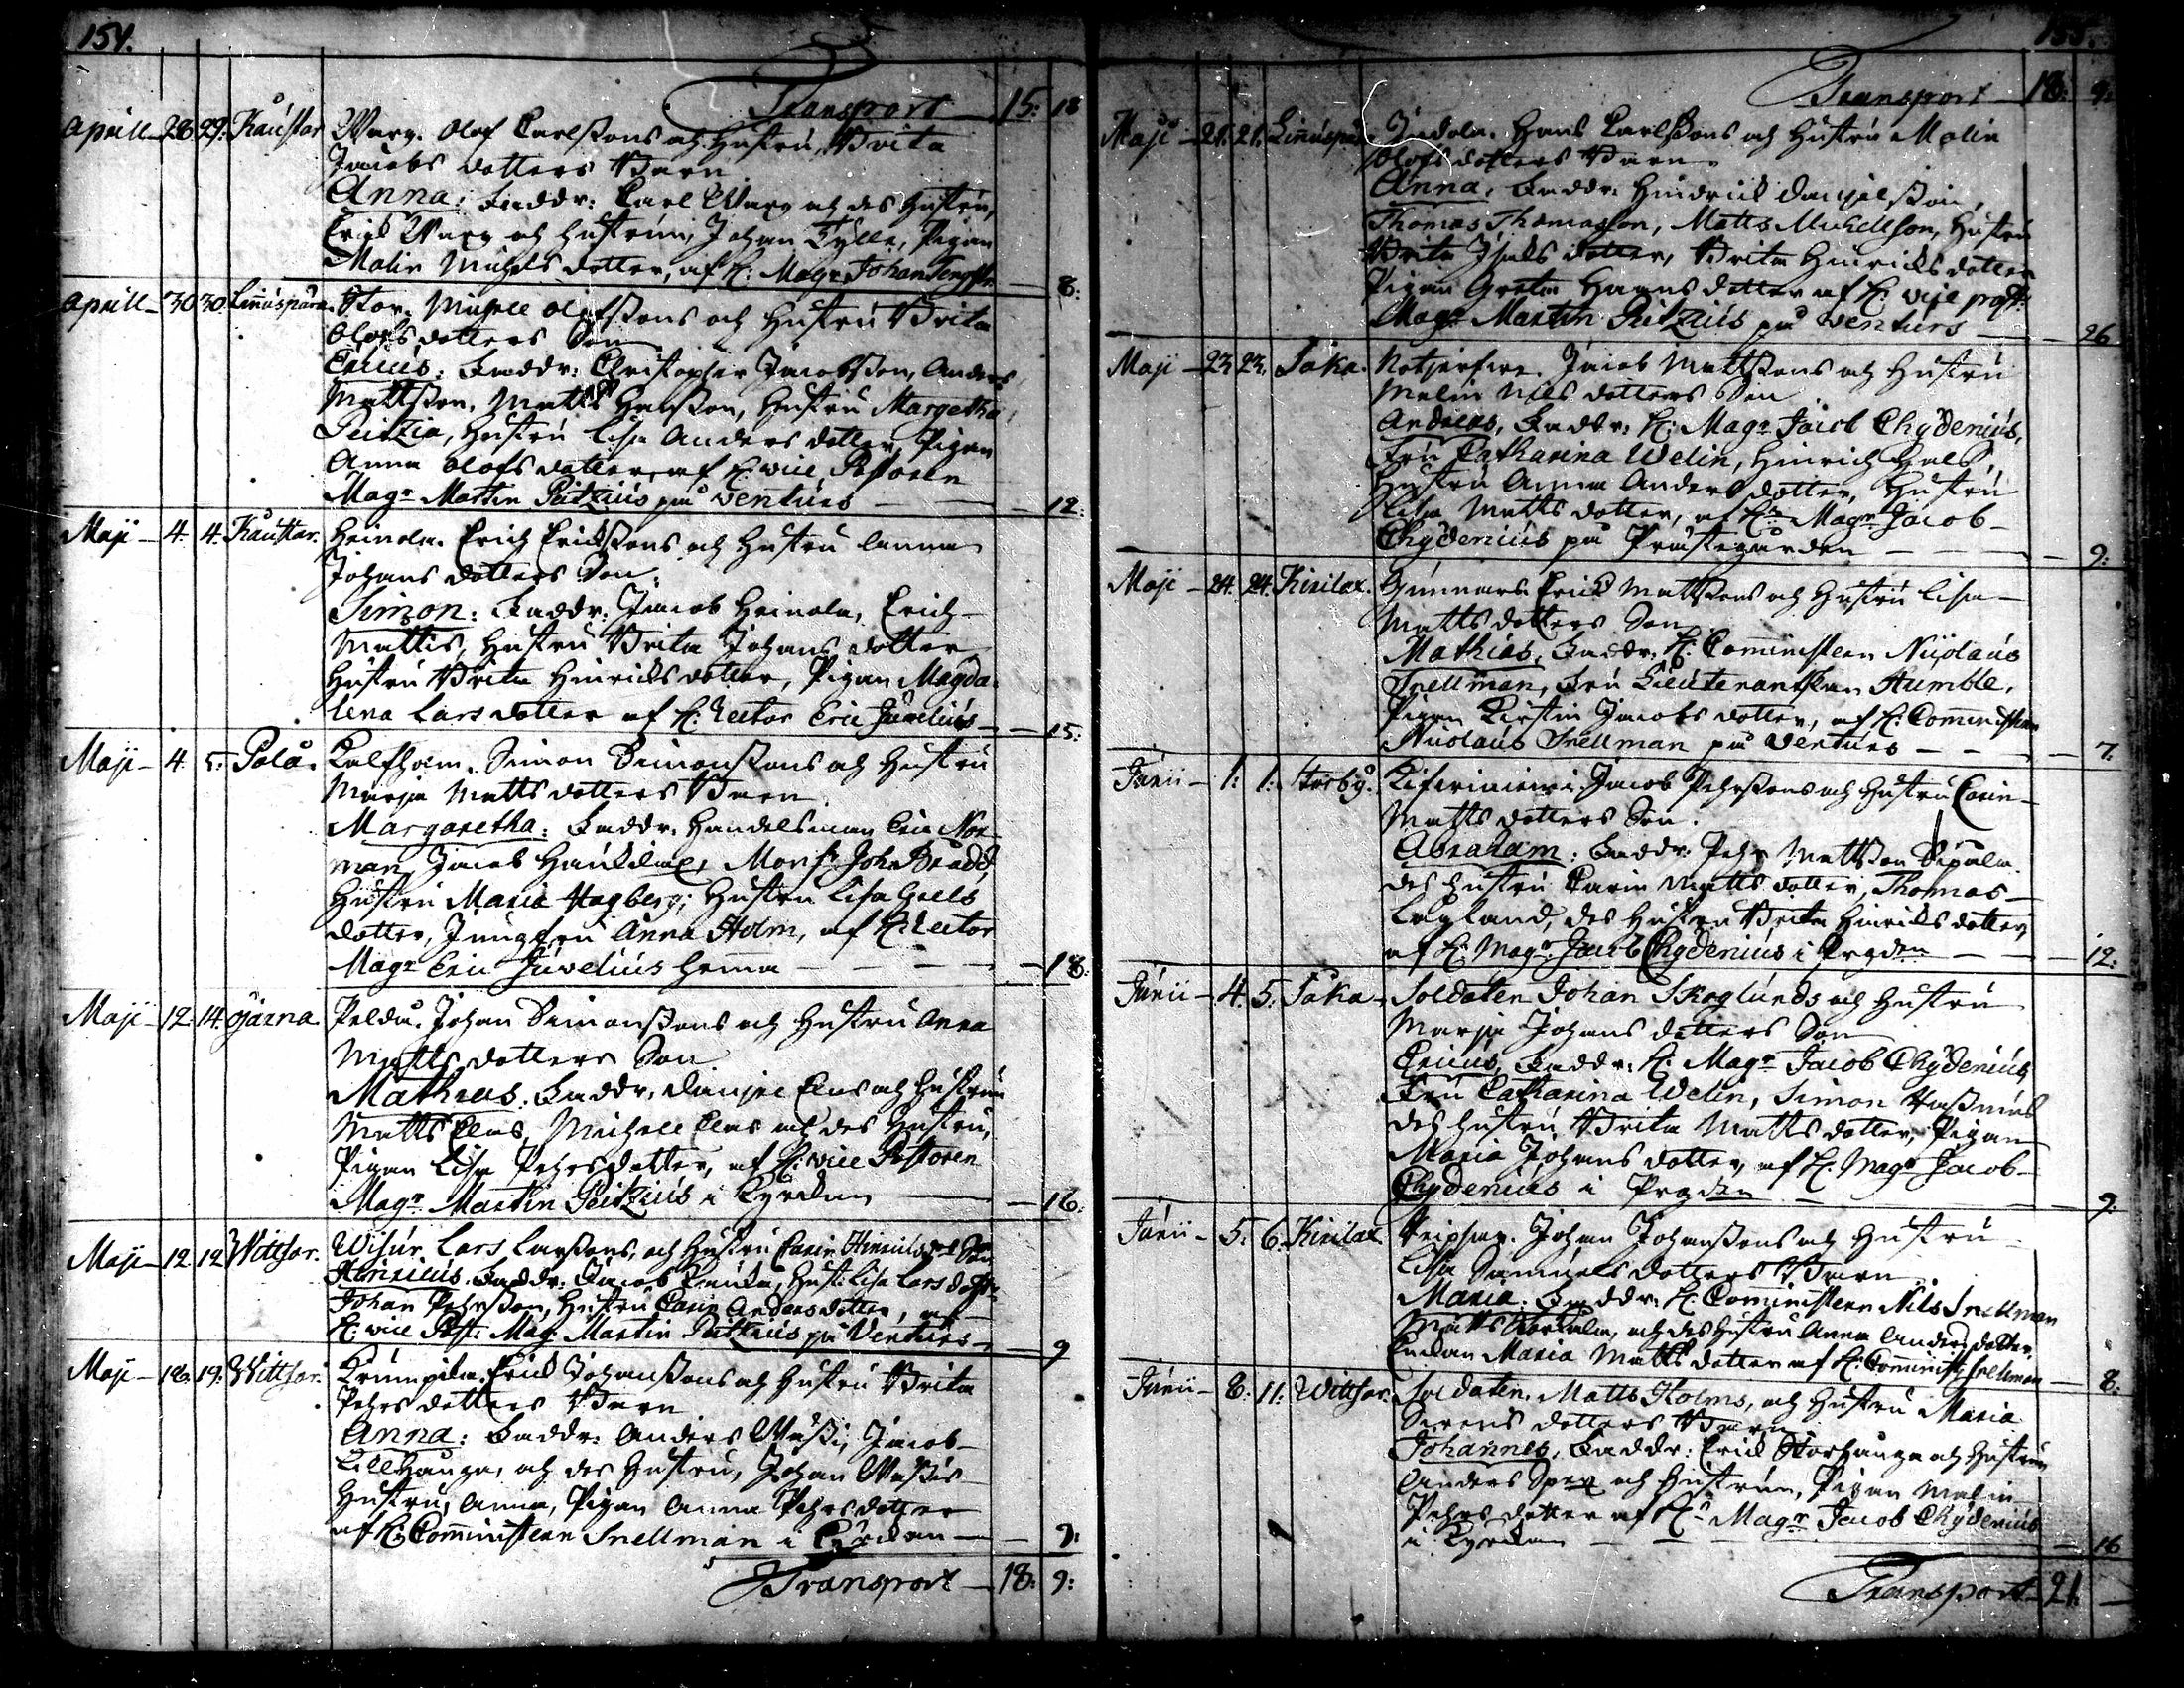 154.
Transport 15: 18
Aprill 28 29. Kaustar Warg. Olof Carlssons och hustru Brita
Jacobs dotters Barn
Anna: Faddr: Carl Warg och des hustru,
Erick Warg och hustrun, Johan Kylle, Pigan
Malin Michels dotter, af H: Magr Johan 8:
Aprill 30 30 Linuspära. Stor. Michell Olofssons och hustru Brita
Olofs dotters Son
Ericus: Faddr: Christopher Jacobsson, Anders
Mattsson, Matts, hustru Margetha
Peitzia, hustru Lisa Anders dotter, Pigan
Anna Olofs dotter, af H: vice Pastoren
Magr Martin Peitzius på Ventures 12:
Maji 4. 4. Kauttar. Heinola. Erich Erickssons och hustru Anna
Johans dotters Son.
Simon: Faddr: Jacob Heinola, Erich
Mattis, hustru Brita Johans dotter
hustru Brita Hinrichs dotter, Pigan Magda-
lena Lars dotter af H: Rector Eric Juvelius 15:
Maji 4. 5. Palå. Kalfholm. Simon Simonssons och hustru
Marja Matts dotters Barn
Margaretha: Faddr: Handelsman Eric Nor-
man, Jacob, Monsr Joh: Brådd,
Hustru Maria Hagberg, hustru Lisa
dotter, Jungfru Anna Holm, af H: Rector
Magr Eric Juvelius hema 18:
Maji 12. 14. Öjarna. Peldu. Johan Simonssons och hustru Anna
Matts dotters Son
Mathias. Faddr. Danjel Clas och hustrun
Matts Clas, Michell Clas och des hustru,
Pigan Lisa Pehrs dotter, af H: vice Pastoren
Magr. Martin Peitzius i Kyrckan 16:
Maji 12 12 Wittsar. Wisur. Lars Larssons, och hustru Carin Hinricks d: Son
Henricus. Faddr: Jacob, Hust: Lisa Lars dott:
Johan Pehrsson, hustru Carin Anders dotter, af
H: vice Past: Mag: Martin Peitzius på Ventures 9
Maji 18. 19. Wittsar. Krumpila. Erick Johanssons och hustru Brita
Pehrs dotters Barn
Anna: Faddr: Anders Wassi, Jacob
Lillhauga, och des hustru, Johan Wassis
Hustru, Anna, Pigan Anna Pehrs dotter
af H: Comministern Snellman i Kyrckan 9:
Transport 18: 9:
155.
Transport 18: 9:
Maji 21. 21. Linuspära Indola. Hans Carlssons och hustru Malin
Olofs dotters Barn
Anna. Faddr: Hindrick Danjelsson,
Thomas Thomasson, Matts Michellson, hustru
Brita Isacks dotter, Brita Hinricks dotter
Pigan Greta Hans dotter af H: vise past:
Magr Martin Peitzius på Venturs 26
Maji 23 23. Jåka. Jacob Mattssons och hustru
Malin Nils dotters Son
Andreas, Faddr: H: Magr Jacob Chydenius,
Fru Catharina Welin, Hinrich
Hustru Anna Anders dotter, hustru
Lisa Matts dotter, af H: Magr Jacob
Chydenius på Prästegården 9:
Maji 24. 24. Kirilax. Gunnars. Erick Mattssons och hustru Lisa
Matts dotters Son
Mathias, Faddr: H: Comministern Nicolaus
Snellman, Fru Lieutenantskan Humble,
Pigan Kirstin Jacobs dotter, af H: Comministern
Nicolaus Snellman på Ventures 7.
Junii 1: 1: Storby. Jacob Pehrssons och hustru Carin
Matts dotters Son.
Abraham: Faddr: Pehr Mattsson
des hustru Carin Matts dotter, Thomas
Lagland, des hustru Brita Hinricks dotter,
af H: Magr Jacob Chydenius i Prgden 12:
Junii 4. 5. Jåka Soldaten Johan Skoglunds och hustru
Marja Johans dotters Son
Ericus, Faddr: H: Magr Jacob Chydenius
Fru Catharina Welin, Simon
des hustru Brita Matts dotter, Pigan
Maria Johans dotter, af H: Magr Jacob
Chydenius i Prgden 9:
Junii 5. 6. Kirilax. Johan Johanssons och hustru
Lisa Samuels dotters Barn
Maria. Faddr: H: Comministern Nils Snellman
Matts, och des hustru Anna Anders dotter,
Maria Matts dotter af H: Comminist: Snellman 8:
Junii 8. 11. Wittsar. Soldaten. Matts Holms, och hustru Maria
Sirens dotters Barn
Johannes, Faddr: Erick Storhauga och hustrun
Anders och hustrun, Pigan Malin
Pehrs dotter af H: Magr Jacob Chydenius
i Kyrckan 16
Transport 21.